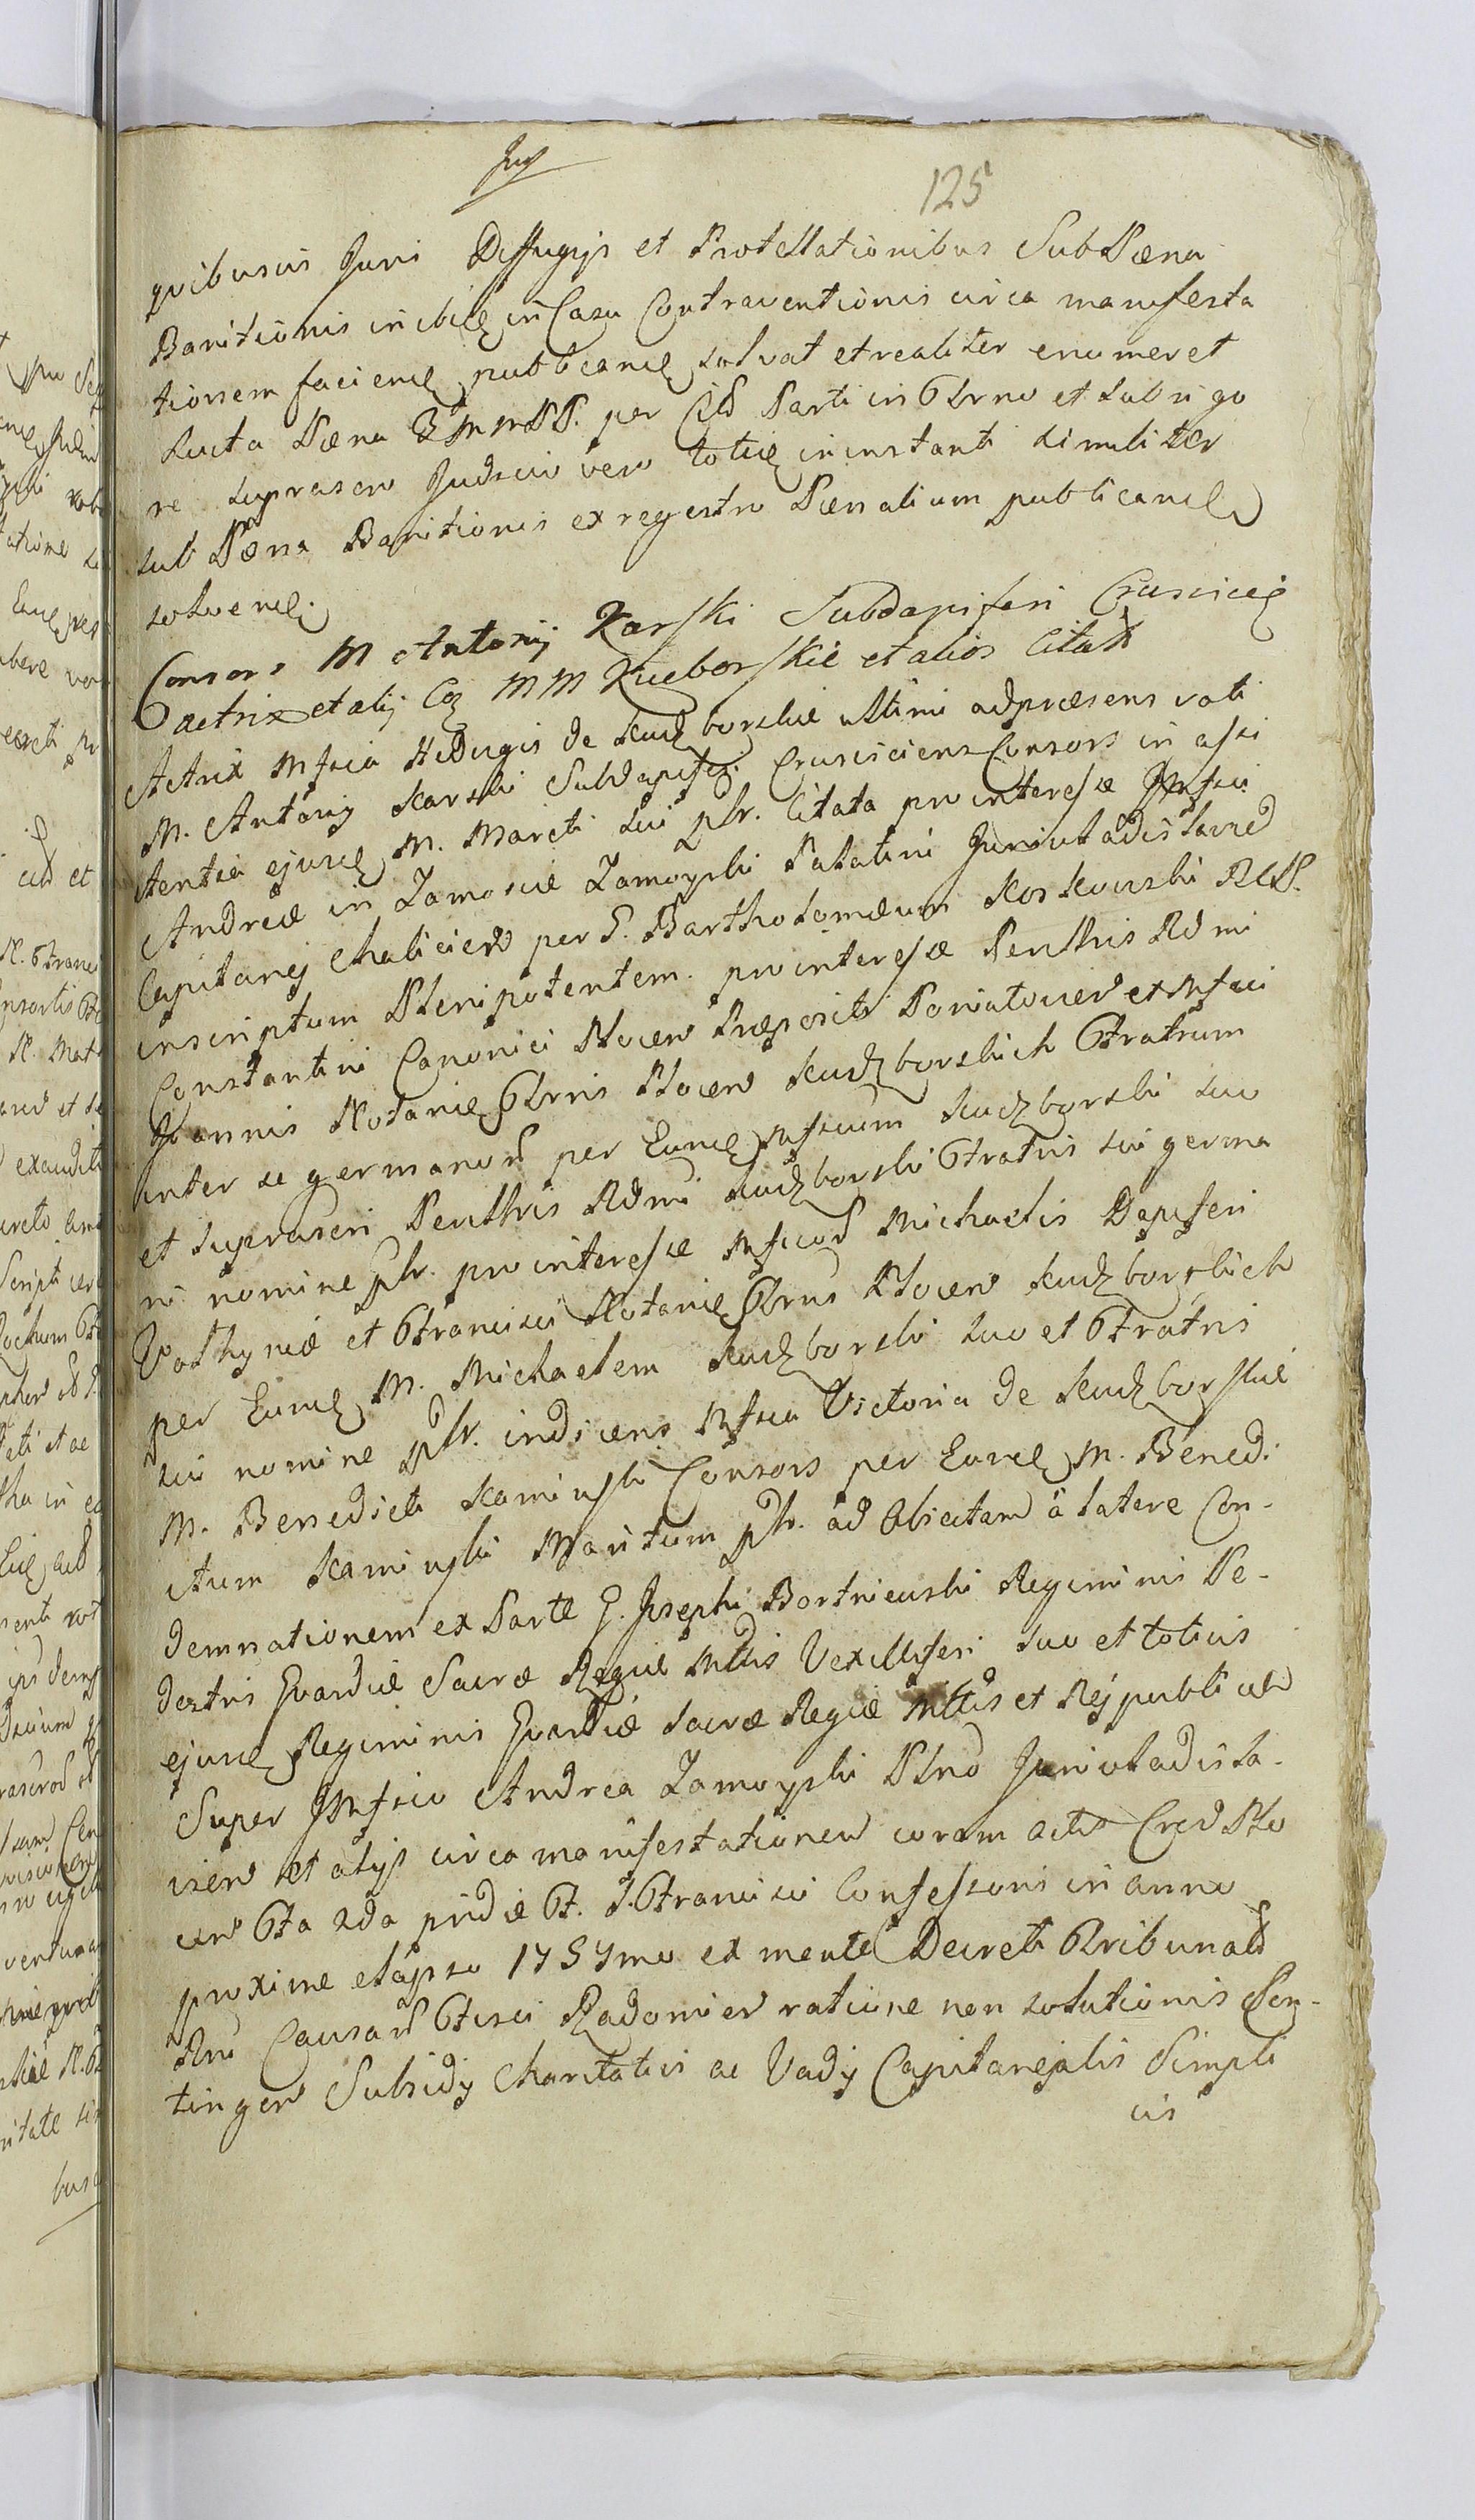 125
quibusvis Juri Diffugijs et Protestationibus Sub Pæna
Banitionis in in Casu Contraventionis circa manifesta
tionem faciend publicand solvat et realiter enumeret
Lucta Pæna 3 M M PP. per Citt Parti in Trno et sub rigo
re suprascr Judicio vero toties in instanti similiter
sub Pæna Banitionis ex regestro Pænalium publicand
solvend.
Consors M Antonij Karski Subdapiferi Crusvicien
actrix et alij Cq MM Kucborskie et alios Citat
Actrix Mfica Hedvigis de Kuczborskie ultimi ad præsens voti
M. Antonij Karski Subdapiferi Crusvicien Consors in assi
stentia ejusd M. Mariti sui plr. Citata pro interesse JMfici
Andreæ in Zamoscie Zamoyski Palatini Juniuladislavied
Capitanej Haliciens per G. Bartholomæum Koskowski RCP.
inscriptum Plenipotentem pro interesse Penthris Rdmi
Constantini Canonici Plocen Præpositi Poniatovien et Mfici
Joannis Notarie Trris Plocen Kuczborskich Fratrum
inter se germanor per Eund Mficum Kuczborski suo
et suprascri Penthris Rdmi Kuczborski Fratris sui germa
ni nomine plr. pro interesse Mficor Michaelis Dapiferi
Volhyniæ et Francisci Notarie Trris Plocen Kuczborskich
per Eund M. Michaelem Kuczborski suo et Fratris
sui nomine plr. indicens Mfica Victoria de Kuczborskie
M. Benedicti Kaminski Consors per Eund M. Benedi
ctum Kaminski Maritum plr. ad Obiectam à latere Con-
demnationem ex Parte G. Josephi Bortniewski Regiminis Pe-
destris Gvardiæ Sacræ Regiæ Mttis Vexilliferi suo et totius
ejusd Regiminis Gvardiæ Sacræ Regiæ Mttis et Rejpublicæ
Super JMfico Andrea Zamoyski Plno Juniuladisla-
vien et alijs circa manifestationem coram actis Plo
cen Fa 2da pridie F. S. Francisci Confessoris in anno
proxime elapso 1757mo ex mente Decreti Tribunal
Rni Causar Fisci Radomien ratione non solutionis Con-
tingen Subsidij Charitativi ac Vadij Capitanejalis Simpli
cis